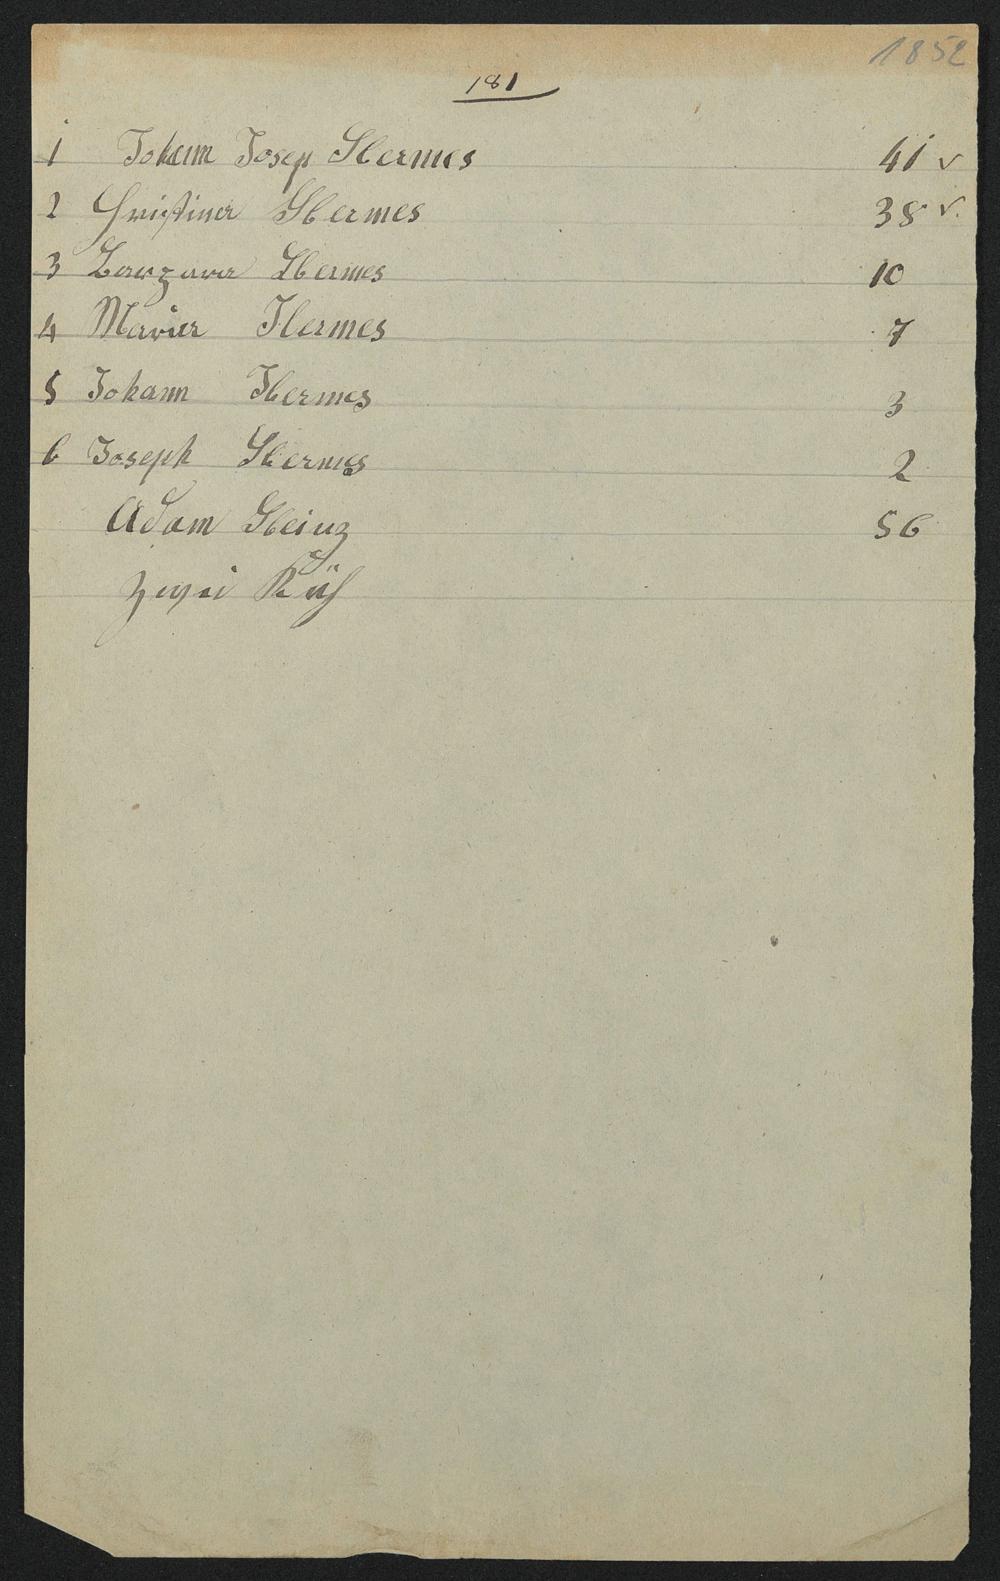 1852
181
1 Johann Josep Hermes 41 v
2 Christina Hermes 38 v.
3 Barbara Hermes 10
4 Maria Hermes 7
5 Johann Hermes 3
6 Joseph Hermes 2
Adam Heinz 56
zwei Küh